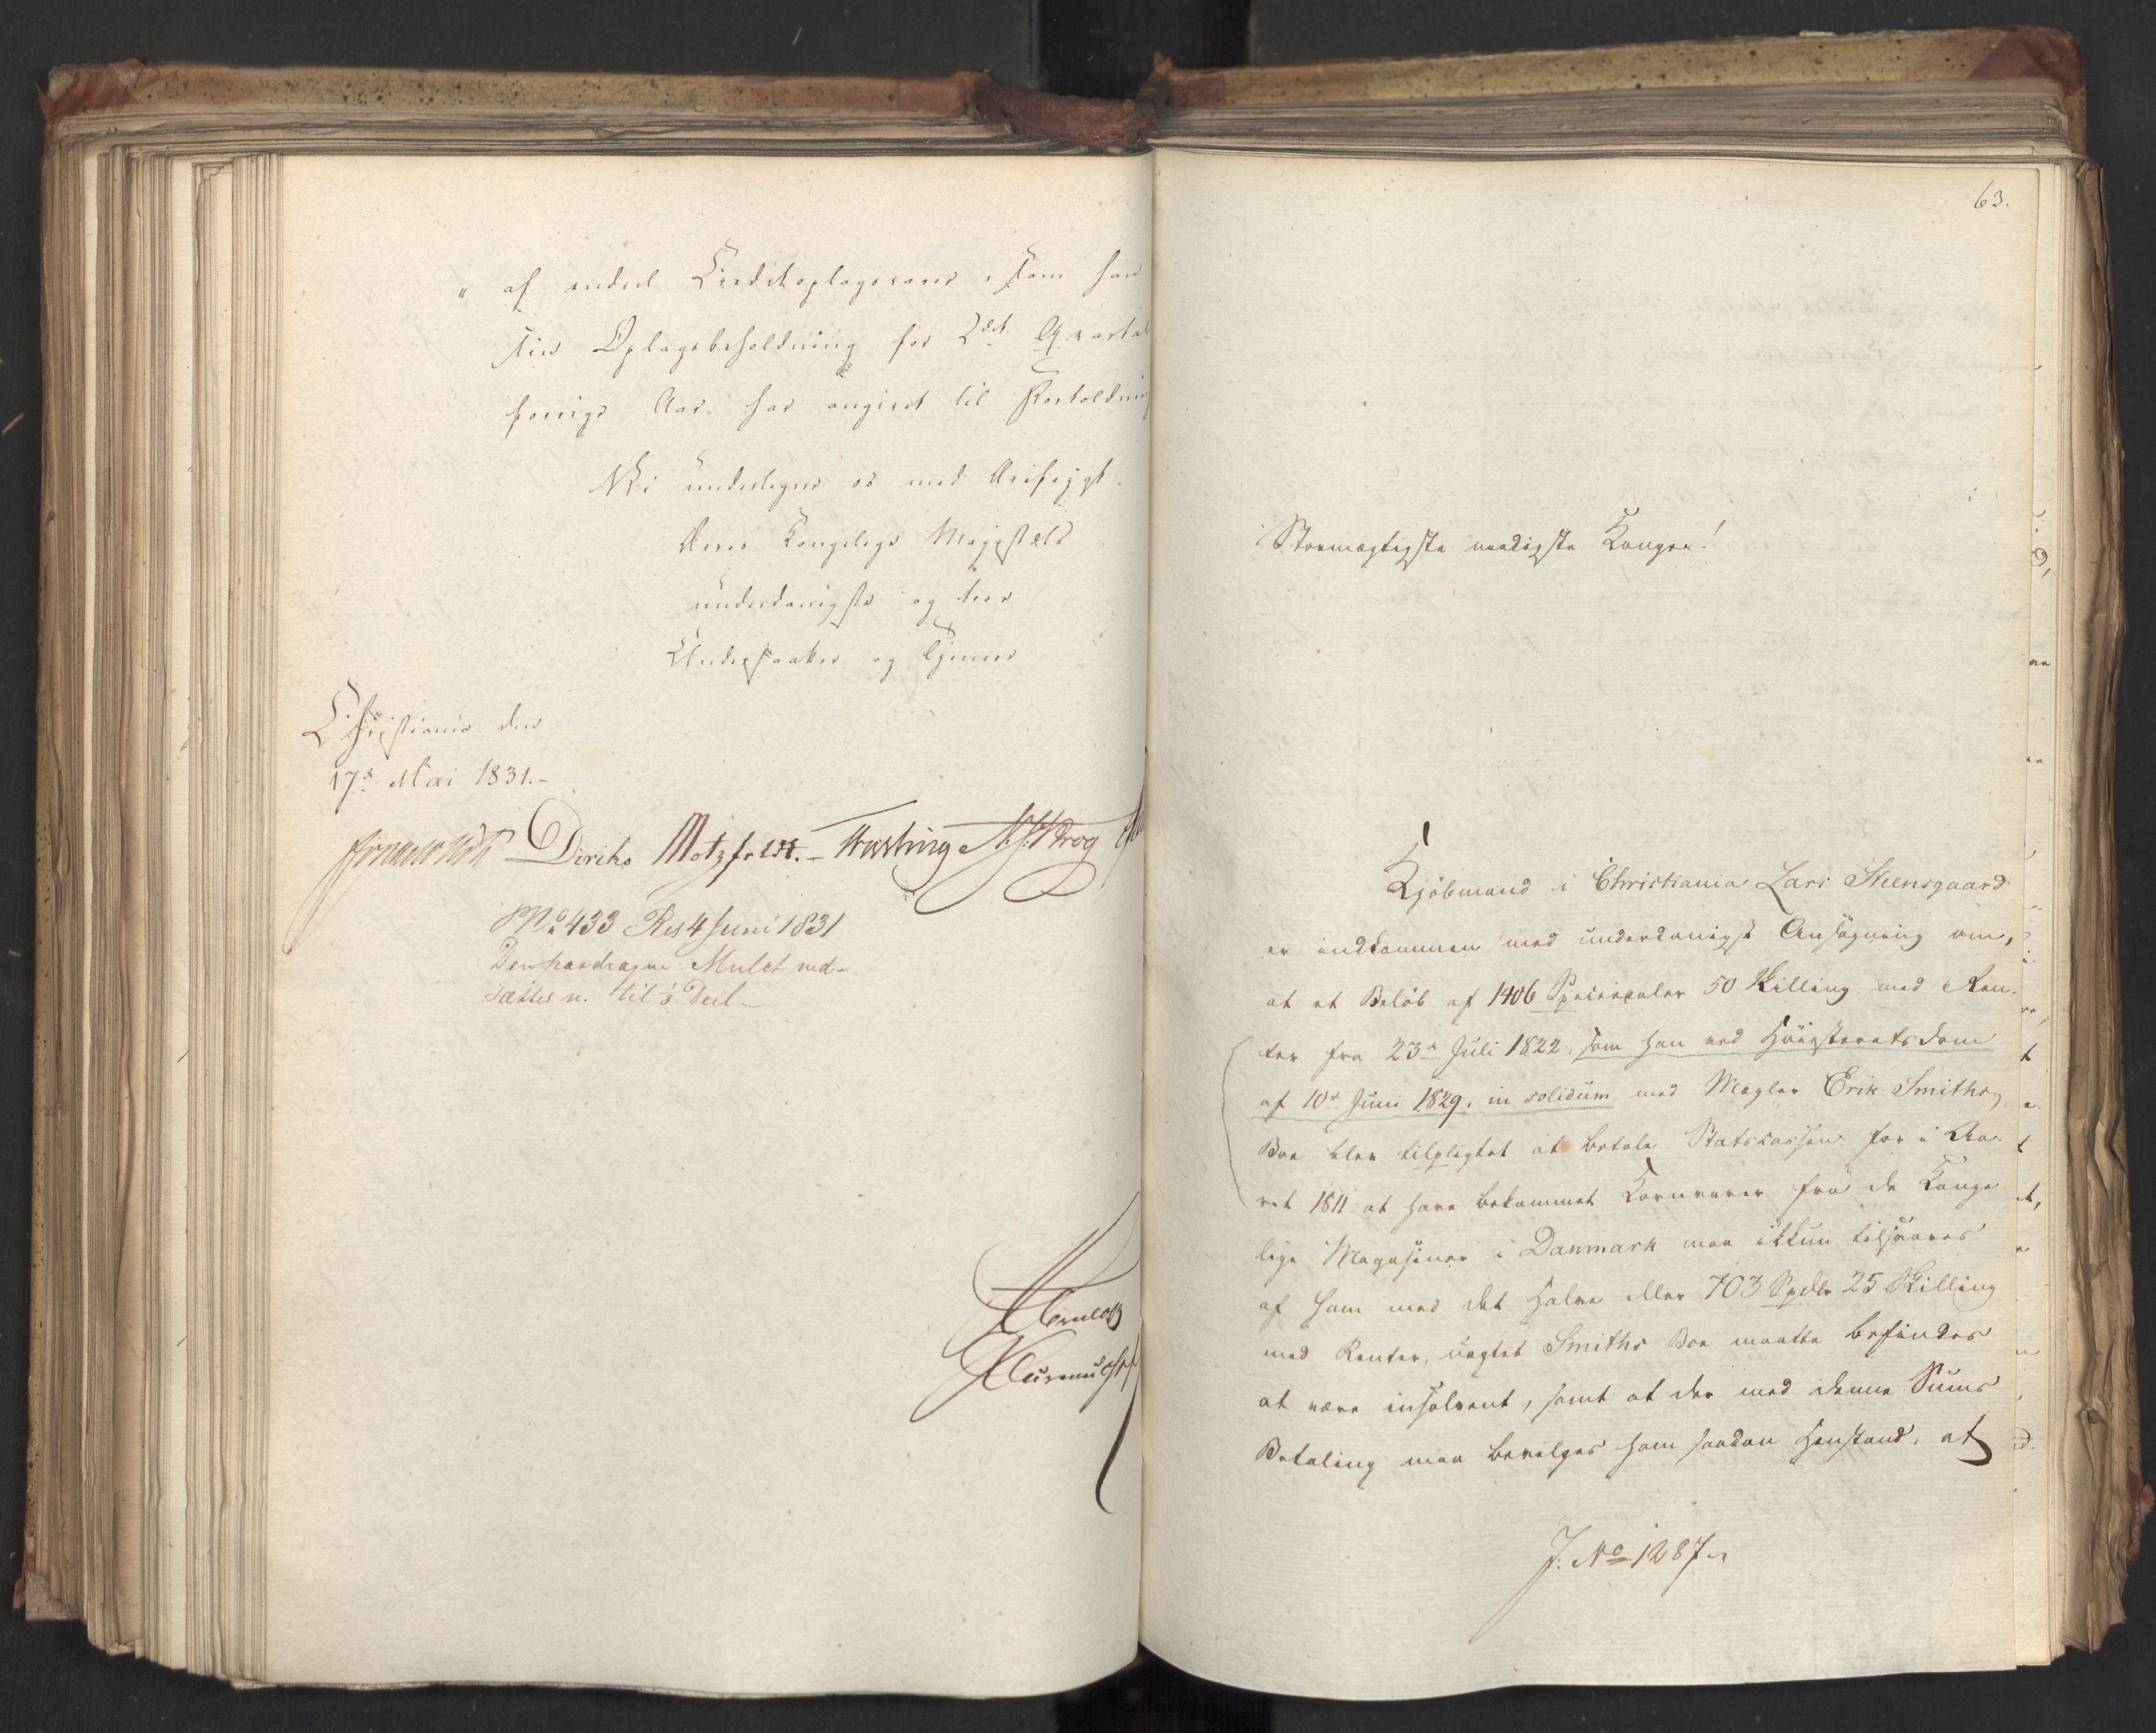 " af endeel Creditoplagsvarer, som han
sin Oplagsbeholdning for 2det Qvartal
forrige Aar har angivet til Fortoldning
Vi undertegne os med Ærefrygt.
Deres Kongelige Majestæts
underdanigste og troe
Undersaatter og Tjenere
Christiania den
17de Mai 1831.-
Diriks Motzfeldt. - Fasting N. J. Krog
No 433 Res 4 Juni 1831
Den paadragne Mulct ned-
sættes n. til 1/3 Deel -
63.
Stormægtigste naadigste Konge!
Kjöbmand i Christiania Lars Steensgaard
er indkommen med underdanigst Ansögning om,
at et Belöb af 1406 Speciedaler 50 Skilling med Ren-
ter fra 23de Juli 1822, som han ved Höiesteretsdom
af 10de Juni 1829. in solidum med Mægler Erik Smiths
Boe blev tilpligtet at betale Statscassen for i Aa-
ret 1811 at have bekommet Kornvarer fra de Konge
lige Magasiner i Danmark maa ikkun tilsvares
af ham med det Halve eller 703 Spdlr 25 Skilling
med Renter, uagtet Smiths Boe maatte befindes
at være insolvent, samt at der med denne Sums
Betaling maa bevilges ham saadan Henstand, at
J. No 1287